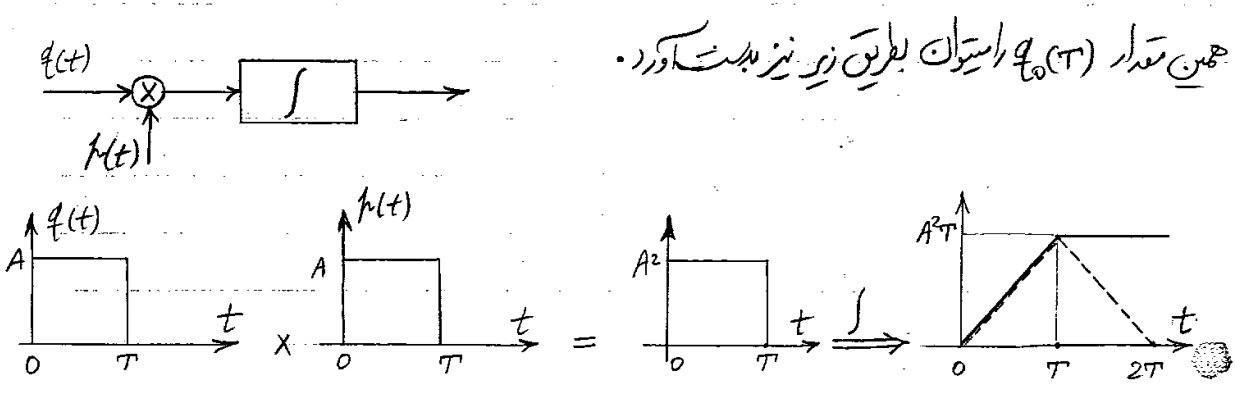 همین مقدار q₀(T) را میتوان بطریق زیر نیز بدست آورد.
q(t)
×
∫
p(t)
q(t)
A
0
T
t
×
p(t)
A
0
T
t
=
A²
0
T
t
∫
A²T
0
T
2T
t